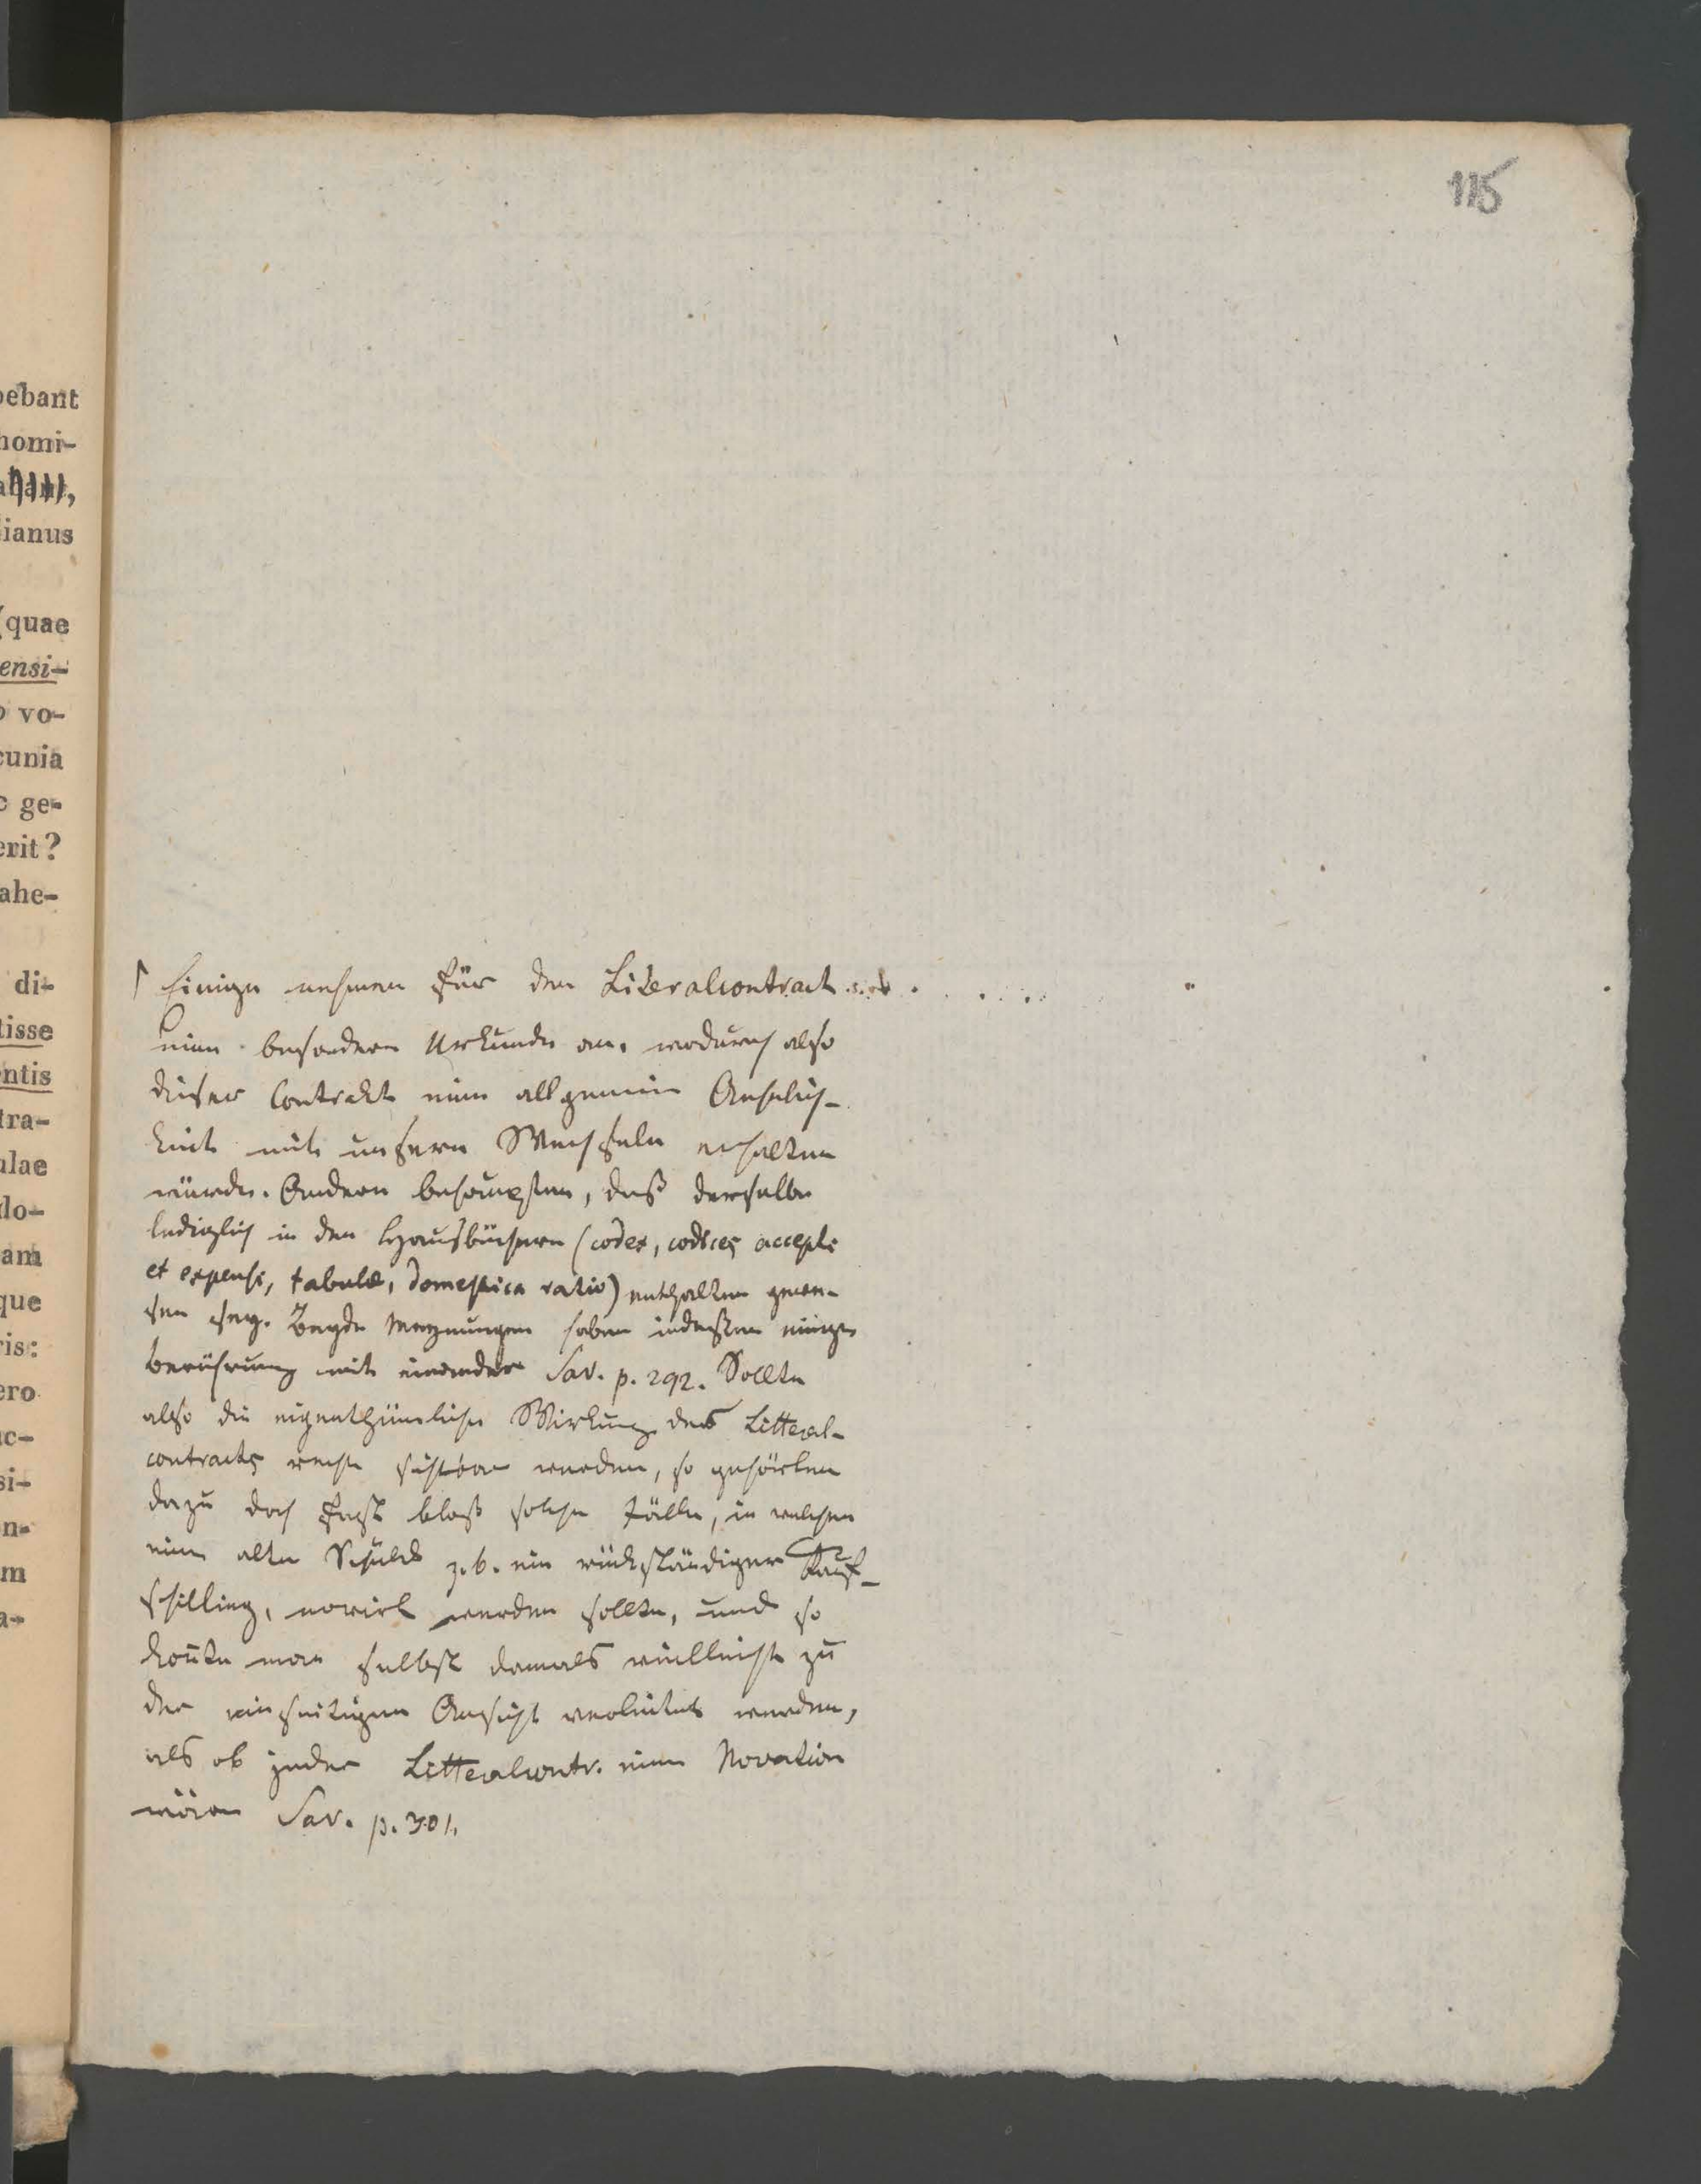 115
ebant
homi-
ianus
(quae
ensi-
vo-
cunia
ge-
erit?
ahe-
di-
tisse
entis
tra-
ulae
do-
am
que
ris:
ero
ac-
si-
n-
m
a-
Einige nehmen für den Literalcontract
eine besondere Urkunde an, wodurch also
dieser Contrakt eine allgemeine Aehnlich-
keit mit unsern Wechseln erhalten
würde. Andere behaupten, daß derselbe
lediglich in den Hausbüchern (codex, codices accepti
et expensi, tabulæ, domestica ratio) enthalten gewe-
sen sey. Beyde Meynungen haben indessen einige
Berührung mit einander Sav. p. 292. Sollte
also die eigenthümliche Wirkung des Litteral-
contracts recht sichtbar werden, so gehörten
dazu doch fast bloß solche Fälle, in welchen
eine alte Schuld z.b. ein rückständiger Kauf-
schilling, novirt werden sollte, und so
konte man selbst damals vielleicht zu
der einseitigen Ansicht verleitet werden,
als ob jeder Litteralcontr. eine Novation
wäre Sav. p. 301.